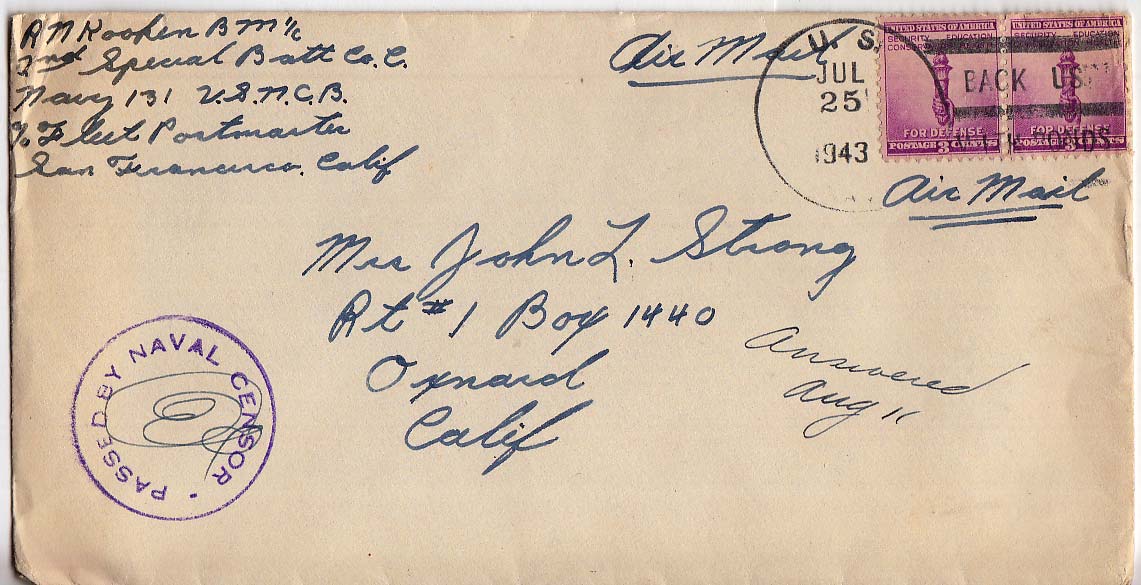 R N Koohen B M 1/c
2nd Special Batt Co. C.
Navy 131 U.S.N.C.B.
℅ Fleet Postmaster
San Francisco, Calif
Air Mail
U. S.
JUL
25
1943
UNITED STATES OF AMERICA
SECURITY EDUCATION
FOR DEFENSE
POSTAGE 3 CENTS
UNITED STATES OF AMERICA
SECURITY EDUCATION
FOR DEFENSE
POSTAGE 3 CENTS
BACK US
WITH BONDS
Air Mail
Mrs John L. Strong
Rt #1 Box 1440
Oxnard
Calif
Answered
Aug 11
PASSED BY NAVAL CENSOR